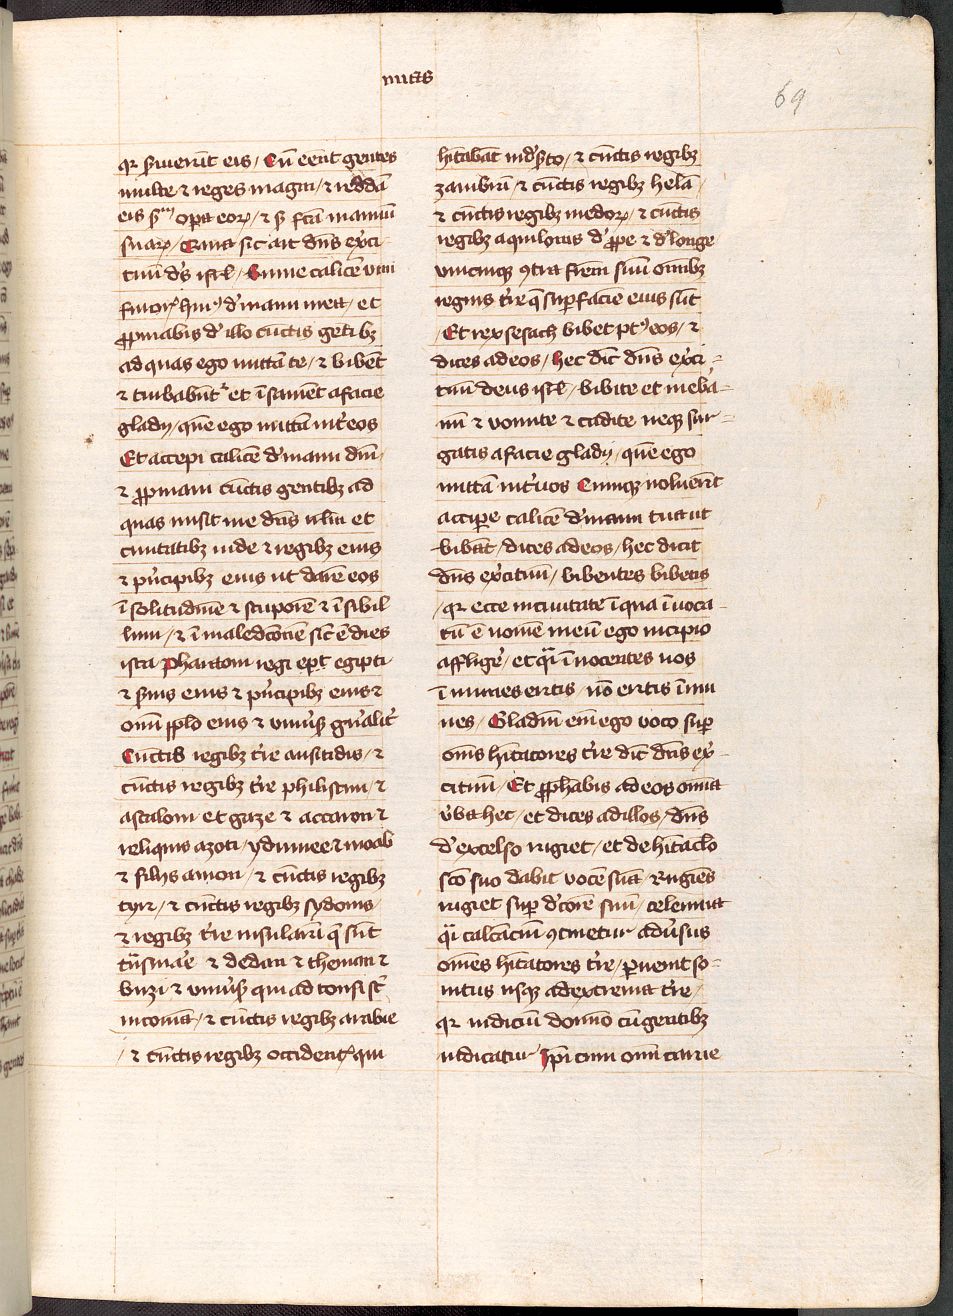 mias
69
qr s̄uierūt eis / Cū eēnt gentes
multe ⁊ reges magni / ⁊ reddā
eis sᵐ opa eoꝝ / ⁊ s fc̄a manuū
suaꝝ / Quia sic ait dn̄s exc̓i
tuū d̓s isrl̄ / Sume calicē uini
furorꝭ huiꝰ d̓ manu mea / et
ꝓpinabis d̓ illo cūctis getibꝫ
ad quas ego mittā te / ⁊ bibēt
⁊ turbabūt̓ et īsanient a facie
gladij / quē ego mittā int̓ eos
Et accepi calicē d̓ manu dn̄i /
⁊ ꝓpinaui cūctis gentibꝫ ad
quas misit me dn̄s irl̄m et
ciuitatibꝫ iude ⁊ regibꝫ eius
⁊ pͥncipibꝫ eius ut darē eos
ī solitudinē ⁊ stuporē ⁊ ī sibil
lum / ⁊ ī maledcōnē sic̄ ē dies
ista Pharaoni regi egipti /
⁊ s̓uis eius ⁊ pͥncipibꝫ eius ⁊
om̄i pplo eius ⁊ uniūs̓ gn̄alit̓
Cunctis regibꝫ t̓re ausitidis / ⁊
cūctis regibꝫ t̓re philistiim / ⁊
ascaloni et gaze ⁊ accaron ⁊
reliquijs azoti / ydumee ⁊ moab
⁊ filijs amon / ⁊ cūctis regibꝫ
tyri / ⁊ cūctis regibꝫ sydonis /
⁊ regibꝫ t̓re insularū q̄ sūt
trāsmar̓e ⁊ dedan ⁊ theman ⁊
buzi ⁊ uniūs̓ qui ad tonsi st̄
in comā / ⁊ cūctis regibꝫ arabie
/ ⁊ cūctis regibꝫ occidentꝭ qui
hītabāt in d̓s̓to / ⁊ cūctis regibꝫ
zambri / ⁊ cūctis regibꝫ helā /
⁊ cūctis regibꝫ medoꝝ / ⁊ cūctis
regibꝫ aquilonis d̓ ꝓpe ⁊ d̓ longe
unicuiqꝫ ꝯtra frēm suū om̄ibꝫ
regnis t̓re q̄ suꝑ faciē eius sūt
/ Et rex sesach bibet ptꝰ eos / ⁊
dices ad eos / hec dic̄ dn̄s exc̓i-
tuū deus isrl̄ / bibite et inebꝛia-
mi ⁊ uomite ⁊ cadite neqꝫ sur-
gatis a facie gladij / quē ego
mittā int̓ uos Cumqꝫ noluerīt
accipe calicē d̓ manu tua ut
bibāt / dices ad eos / hec dicit
dn̄s exc̓ituū / bibentes bibetis
/ qr ecce in ciuitate ī qua īuoca-
tū ē nomē meū ego incipio
affligē / et qͣi īnocentes uos
ī munes eritis / nō eritis īmu
nes / Gladiū em̄ ego uoco suꝑ
om̄s hītatores t̓re dic̄ dn̄s ex-
cituū / Et ꝓphabis ad eos om̄ia
ūba hec / et dices ad illos / dn̄s
d̓ excelso rugiet / et de hītac̄lo
sc̄o suo dabit uocē suā / Rugiēs
rugiet suꝑ d̓corē suū / celeuma
qͣi calcāciū ꝯcinetur aduūsus
om̄es hītatores t̓re / ꝑuenit so-
nitus usqꝫ ad extrema t̓re /
qr iudiciū domīo cū gentibꝫ
iudicatur Ip̄e cum om̄i carne